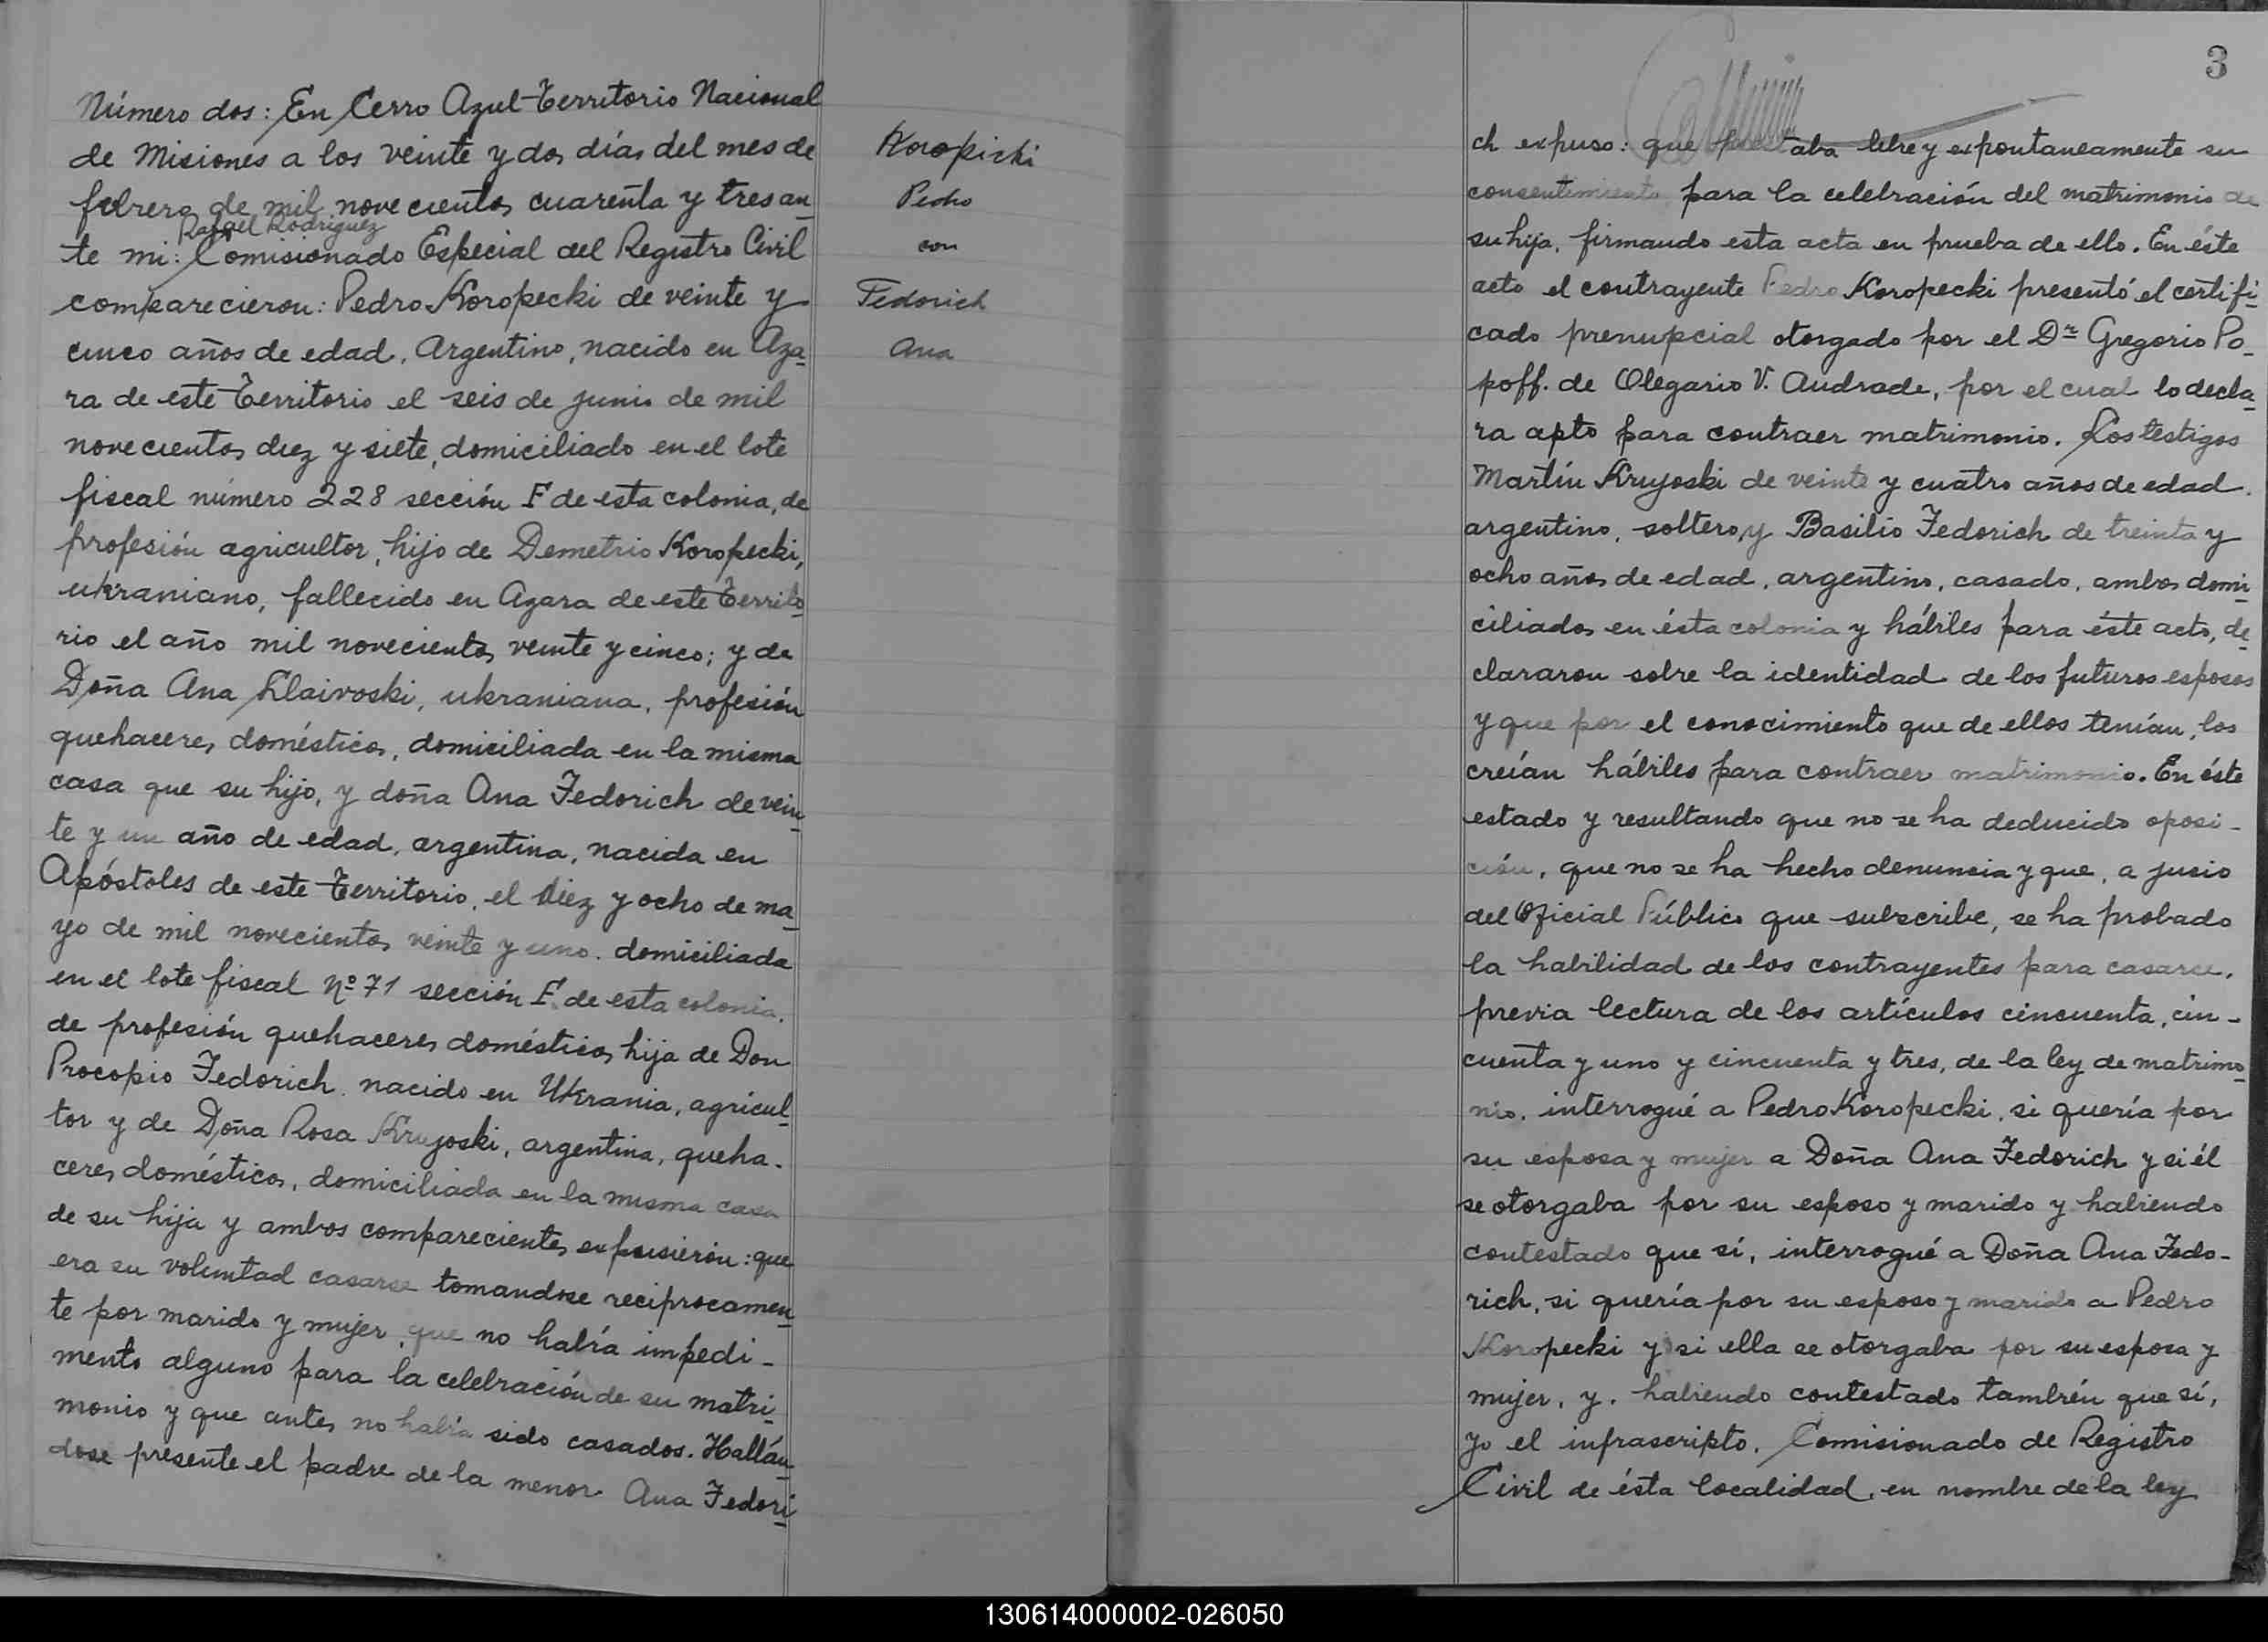 Número dos: En Cerro Azul-Territorio Nacional
de Misiones a los veinte y dos días del mes de
febrero de mil novecientos cuarenta y tres an_
Rafael Rodriguez
te mi: Comisionado Especial del Registro Civil
comparecieron: Pedro Koropecki de veinte y
cinco años de edad, Argentino, nacido en Aza_
ra de este Territorio el seis de junio de mil
novecientos diez y siete, domiciliado en el lote
fiscal número 228 sección F de esta colonia, de
profesión agricultor, hijo de Demetrio Koropecki,
ukraniano, fallecido en Azara de este Territo_
rio el año mil novecientos veinte y cinco; y de
Doña Ana, ukraniana, profesión
quehaceres domésticos, domiciliada en la misma
casa que su hijo, y doña Ana Fedorich de vein_
te y un año de edad, argentina, nacida en
Apóstoles de este Territorio, el diez y ocho de ma_
yo de mil novecientos veinte y uno. domiciliada
en el lote fiscal Nº 71 sección F. de esta colonia.
de profesión quehaceres domésticos, hija de Don
Procopio Fedorich. nacido en Ukrania, agricul_
tor y de Doña Rosa Krujoski, argentina, queha-
ceres domésticos, domiciliada en la misma casa
de su hija y ambos comparecientes expusieron: que
era su voluntad casarse tomandose reciprocamen_
te por marido y mujer, que no había impedi-
mento alguno para la celebración de su matri_
monio y que antes no había sido casados. Hallán_
dose presente el padre de la menor Ana Fedori_
Koropicki
Pedro
con
Fedorich
Ana
3
ch expuso: que prestaba libre y expontaneamente su
consentimiento para la celebración del matrimonio de
su hija, firmando esta acta en prueba de ello. En éste
acto el contrayente Pedro Koropecki presentó el certifi_
cado prenupcial otorgado por el Dr Gregorio Po_
poff. de Olegario V. Andrade, por el cual lo decla_
ra apto para contraer matrimonio. Los testigos
Martín Krujoski de veinte y cuatro años de edad.
argentino, soltero, y Basilio Fedorich de treinta y
ocho años de edad, argentino, casado, ambos domi_
ciliados en ésta colonia y hábiles para éste acto, de_
clararon sobre la identidad de los futuros esposos
y que por el conocimiento que de ellos tenían, los
creían hábiles para contraer matrimonio. En éste
estado y resultando que no se ha deducido oposi-
ción, que no se ha hecho denuncia y que, a jucio
del Oficial Público que subscribe, se ha probado
la habilidad de los contrayentes para casarse,
previa lectura de los artículos cincuenta, cin-
cuenta y uno y cincuenta y tres, de la ley de matrimo_
nio, interrogué a Pedro Koropecki, si quería por
su esposa y mujer a Doña Ana Fedorich y si él
se otorgaba por su esposo y marido y habiendo
contestado que sí, interrogué a Doña Ana Fedo-
rich, si quería por su esposo y marido a Pedro
Koropecki y si ella se otorgaba por su esposa y
mujer, y, habiendo contestado también que sí,
yo el infrascripto, Comisionado de Registro
Civil de ésta localidad, en nombre de la ley
130614000002-026050